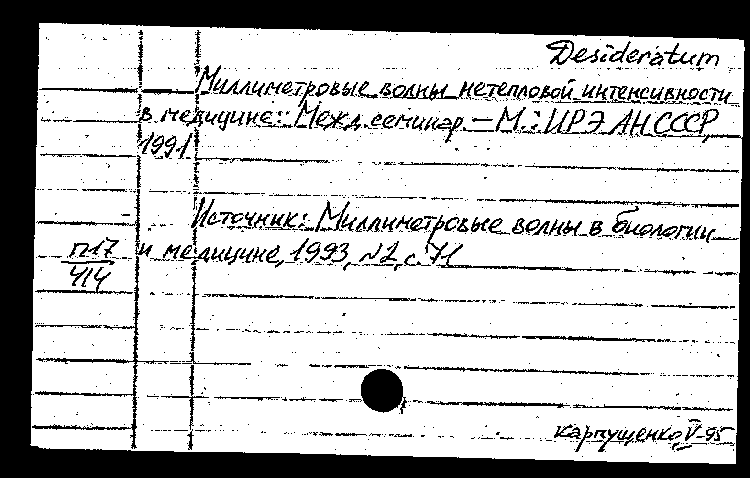 Desideratum
Миллиметровые волны нетепловой интенсивности
в медицине: Межд. семинар. — М.: ИРЭ АН СССР,
1991
Источник: Миллиметровые волны в биологии
п17 и медицине, 1993, N2, с. 71
414
Карпущенко, V-95